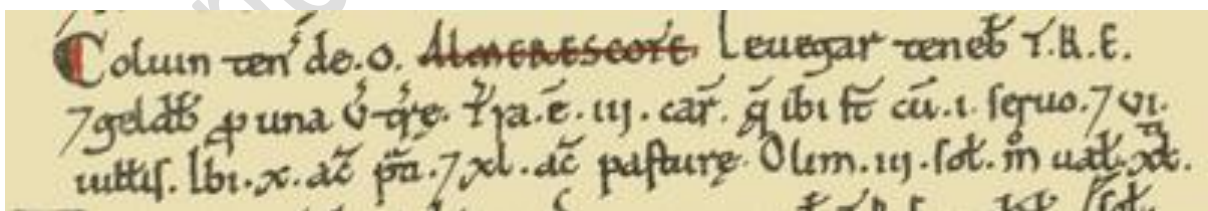 Coluin ten̄ de.O. ALMERESCOTE. Leuegar teneb̄ T.R.E.
⁊ geldb̄ ꝓ una v̓ træ. T̓ra.ē.iij.car̄. q̄ ibi st̄ cū.i.seruo.⁊ vi.
uill̄is. Ibi.x.ac̄ p̄ti.⁊ xl.ac̄ pasturæ. Olim.iij.sol̄. m̊ ual̄.